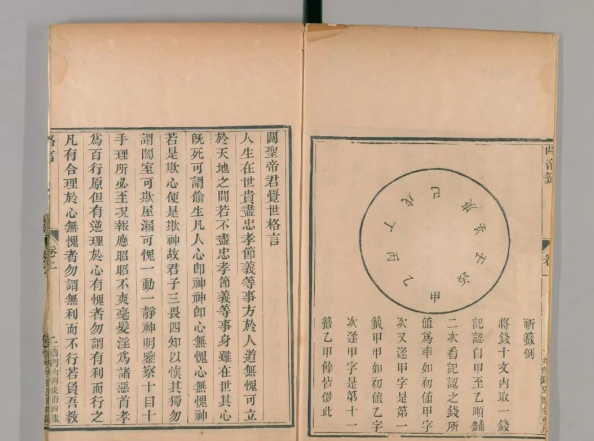 甲
乙
丙
丁
戊
己
庚
辛
壬
癸
祈籤例
將錢十文內取一錢
記認自甲至乙順鋪
二次看記認之錢所
值爲奉如初值甲字
次又逢甲字是第一
籤甲甲如初值乙字
次逢甲字是第十一
籤乙甲餘皆倣此
關聖帝君覺世格言
人生在世貴盡忠孝節義等事方於人道無愧可立
於天地之間若不盡忠孝節義等事身雖在世其心
旣死可謂偷生凡人心卽神神卽心無愧心無愧神
若是欺心便是欺神故君子三畏四知以慎其獨勿
謂闇室可欺屋漏可愧一動一靜神明鑒察十目十
手理所必至現報應昭昭不爽毫髮淫爲諸惡首孝
爲百行原但有逆理於心有愧者勿謂有利而行之
凡有合理於心無愧者勿謂無利而不行若負吾敎